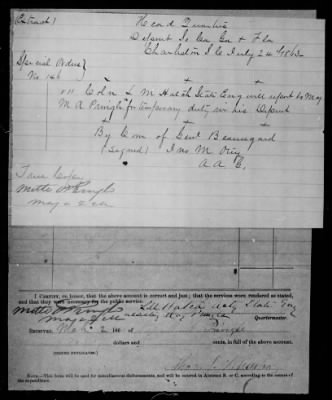 Extract)
Head Quarters
Departt So Ca Ga & Fla
Charleston S C July 24 1863
Special Orders}
No 146
VII Col L M Hatch State Eng will report to Maj
M A Pringle for temporary duty in his Depart
By Com of Genl Beauregard
(Signed) Jno M Otey
A A G
True Copy
Motte A Pringle
Maj & QM
I CERTIFY, on honor, that the above account is correct and just; that the services were rendered as stated,
and that they were necessary for the public service.
Motte A Pringle
Maj & QM
Quartermaster.
RECEIVED,
of
dollars and
cents, in full of the above account.
(SIGNED DUPLICATES.)
NOTE.—This form will be used for miscellaneous disbursements, and will be entered in Abstract B. or C. according to the nature of
the expenditure.